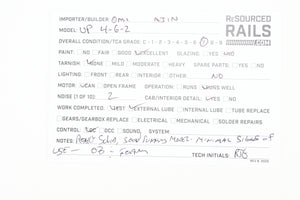 IMPORTER/BUILDER OMI AJIN
RESOURCED
RAILS
.COM
MODEL: UP 4-6-2
OVERALL CONDITION/TCA GRADE: C - 1 - 2 - 3 - 4 - 5 - 6 - 7 8 - 9
PAINT: NO FAIR GOOD EXCELLENT GLAZING YES NO
TARNISH: NONE MILD MODERATE HEAVY SPARE PARTS YES NO
LIGHTING: FRONT REAR INTERIOR OTHER NO
MOTOR: CAN OPEN FRAME OPERATION RUNS RUNS WELL
NOISE (1 OF 10): 2 CAB/INTERIOR DETAIL: YES NO
WORK COMPLETED: EXTERNAL LUBE INTERNAL LUBE TUBE REPLACE
GEARS/GEARBOX REPLACE ELECTRICAL MECHANICAL SOLDER REPAIRS
CONTROL: DC DCC SOUND, SYSTEM
NOTES: SOLID, MODEL MINIMAL SIGNS OF
USE -
TECH INITIALS: